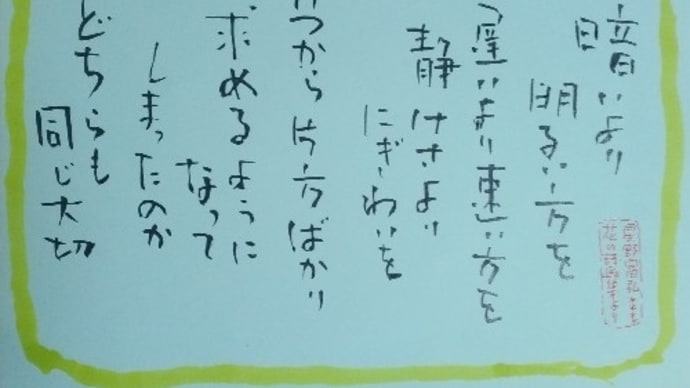 暗いより
明るい方を
遅いより速い方を
静けさより
にぎわいを
いつから片方ばかり
求めるように
なって
しまったのか
どちらも
同じ大切